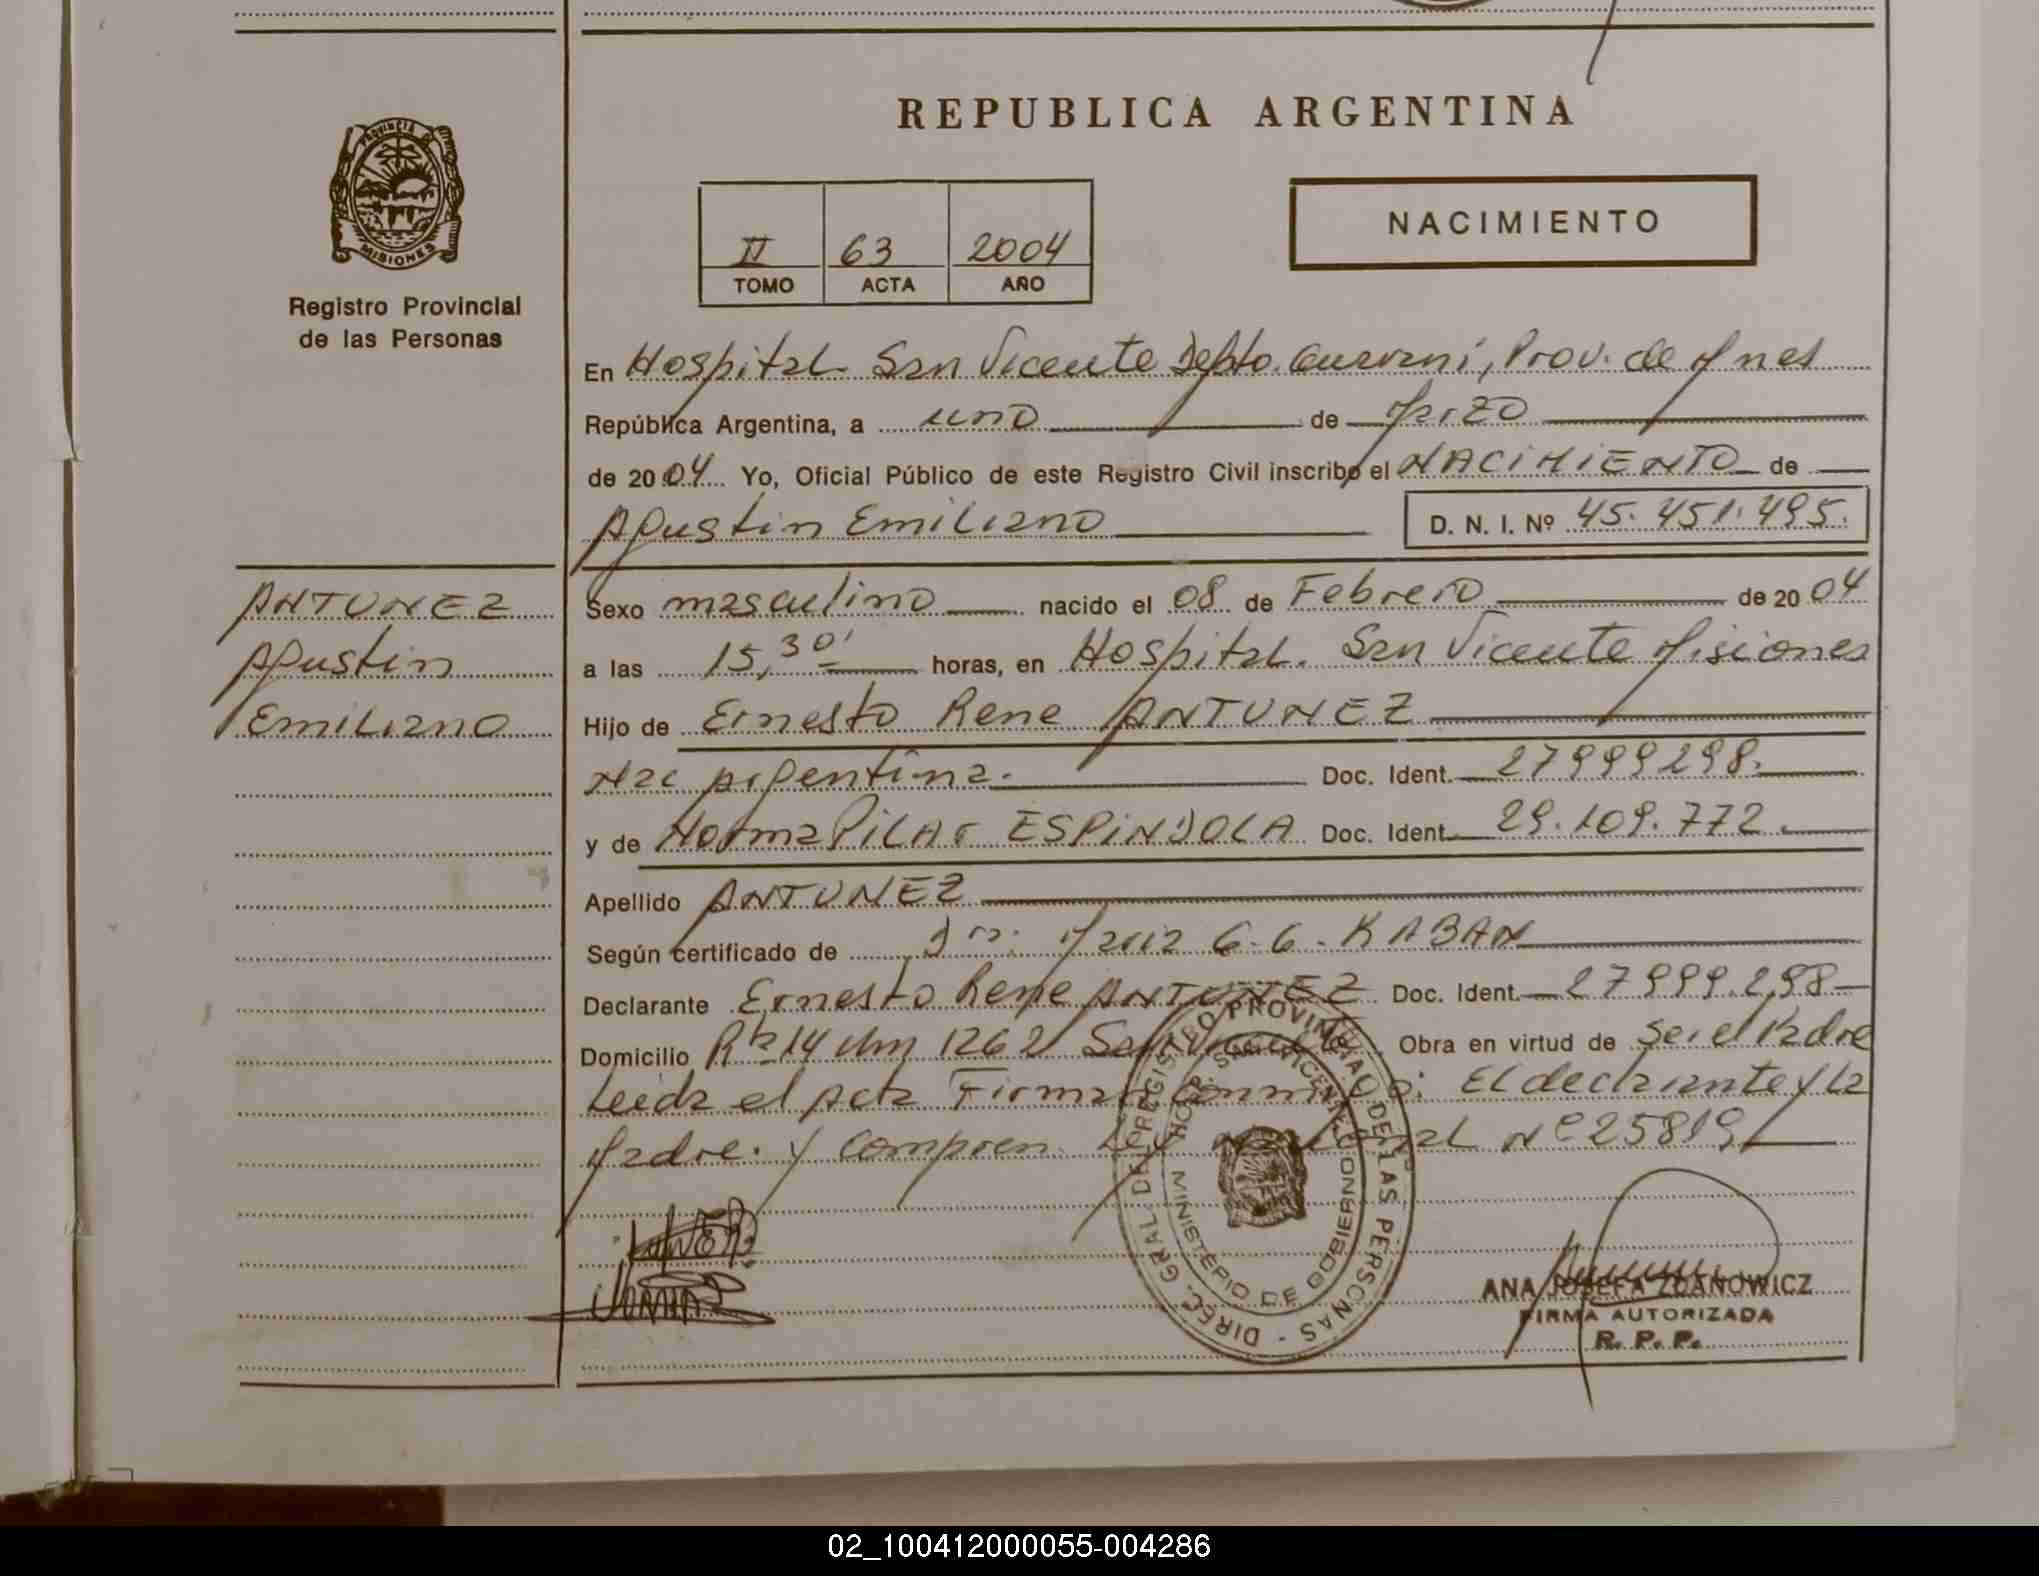 REPUBLICA ARGENTINA
PROVINCIA DE MISIONES
Registro Provincial
de las Personas
II 63 2004
TOMO ACTA AÑO
NACIMIENTO
En Hospital San Vicente Depto. Guarani, Prov. de Mnes
República Argentina, a uno de Marzo
de 2004 Yo, Oficial Público de este Registro Civil inscribo el NACIMIENTO de
Agustin Emiliano D. N. I. Nº 45.451.495.
ANTUNEZ
Agustin
Emiliano
Sexo masculino nacido el 08 de Febrero de 2004
a las 15,30' horas, en Hospital. San Vicente Misiones
Hijo de Ernesto Rene ANTUNEZ
Nac Argentina. Doc. Ident. 27999298.
y de Norma Pilar ESPINDOLA Doc. Ident. 29.109.772.
Apellido ANTUNEZ
Según certificado de Dra. Maria G. G. KABAN
Declarante Ernesto Rene ANTUNEZ Doc. Ident. 27999.298
Domicilio Rta 14 Km 1262 San Vicente Obra en virtud de ser el Padre
Leida el Acta Firman conmigo: El declarante y la
Madre. y compren. Ley nacional Nº 25819
DIREC. GRAL. DEL REGISTRO PROVINCIAL DE LAS PERSONAS
MINISTERIO DE GOBIERNO
HOSP. SAN VICENTE
ANA JOSEFA ZDANOWICZ
FIRMA AUTORIZADA
R. P. P.
02_100412000055-004286